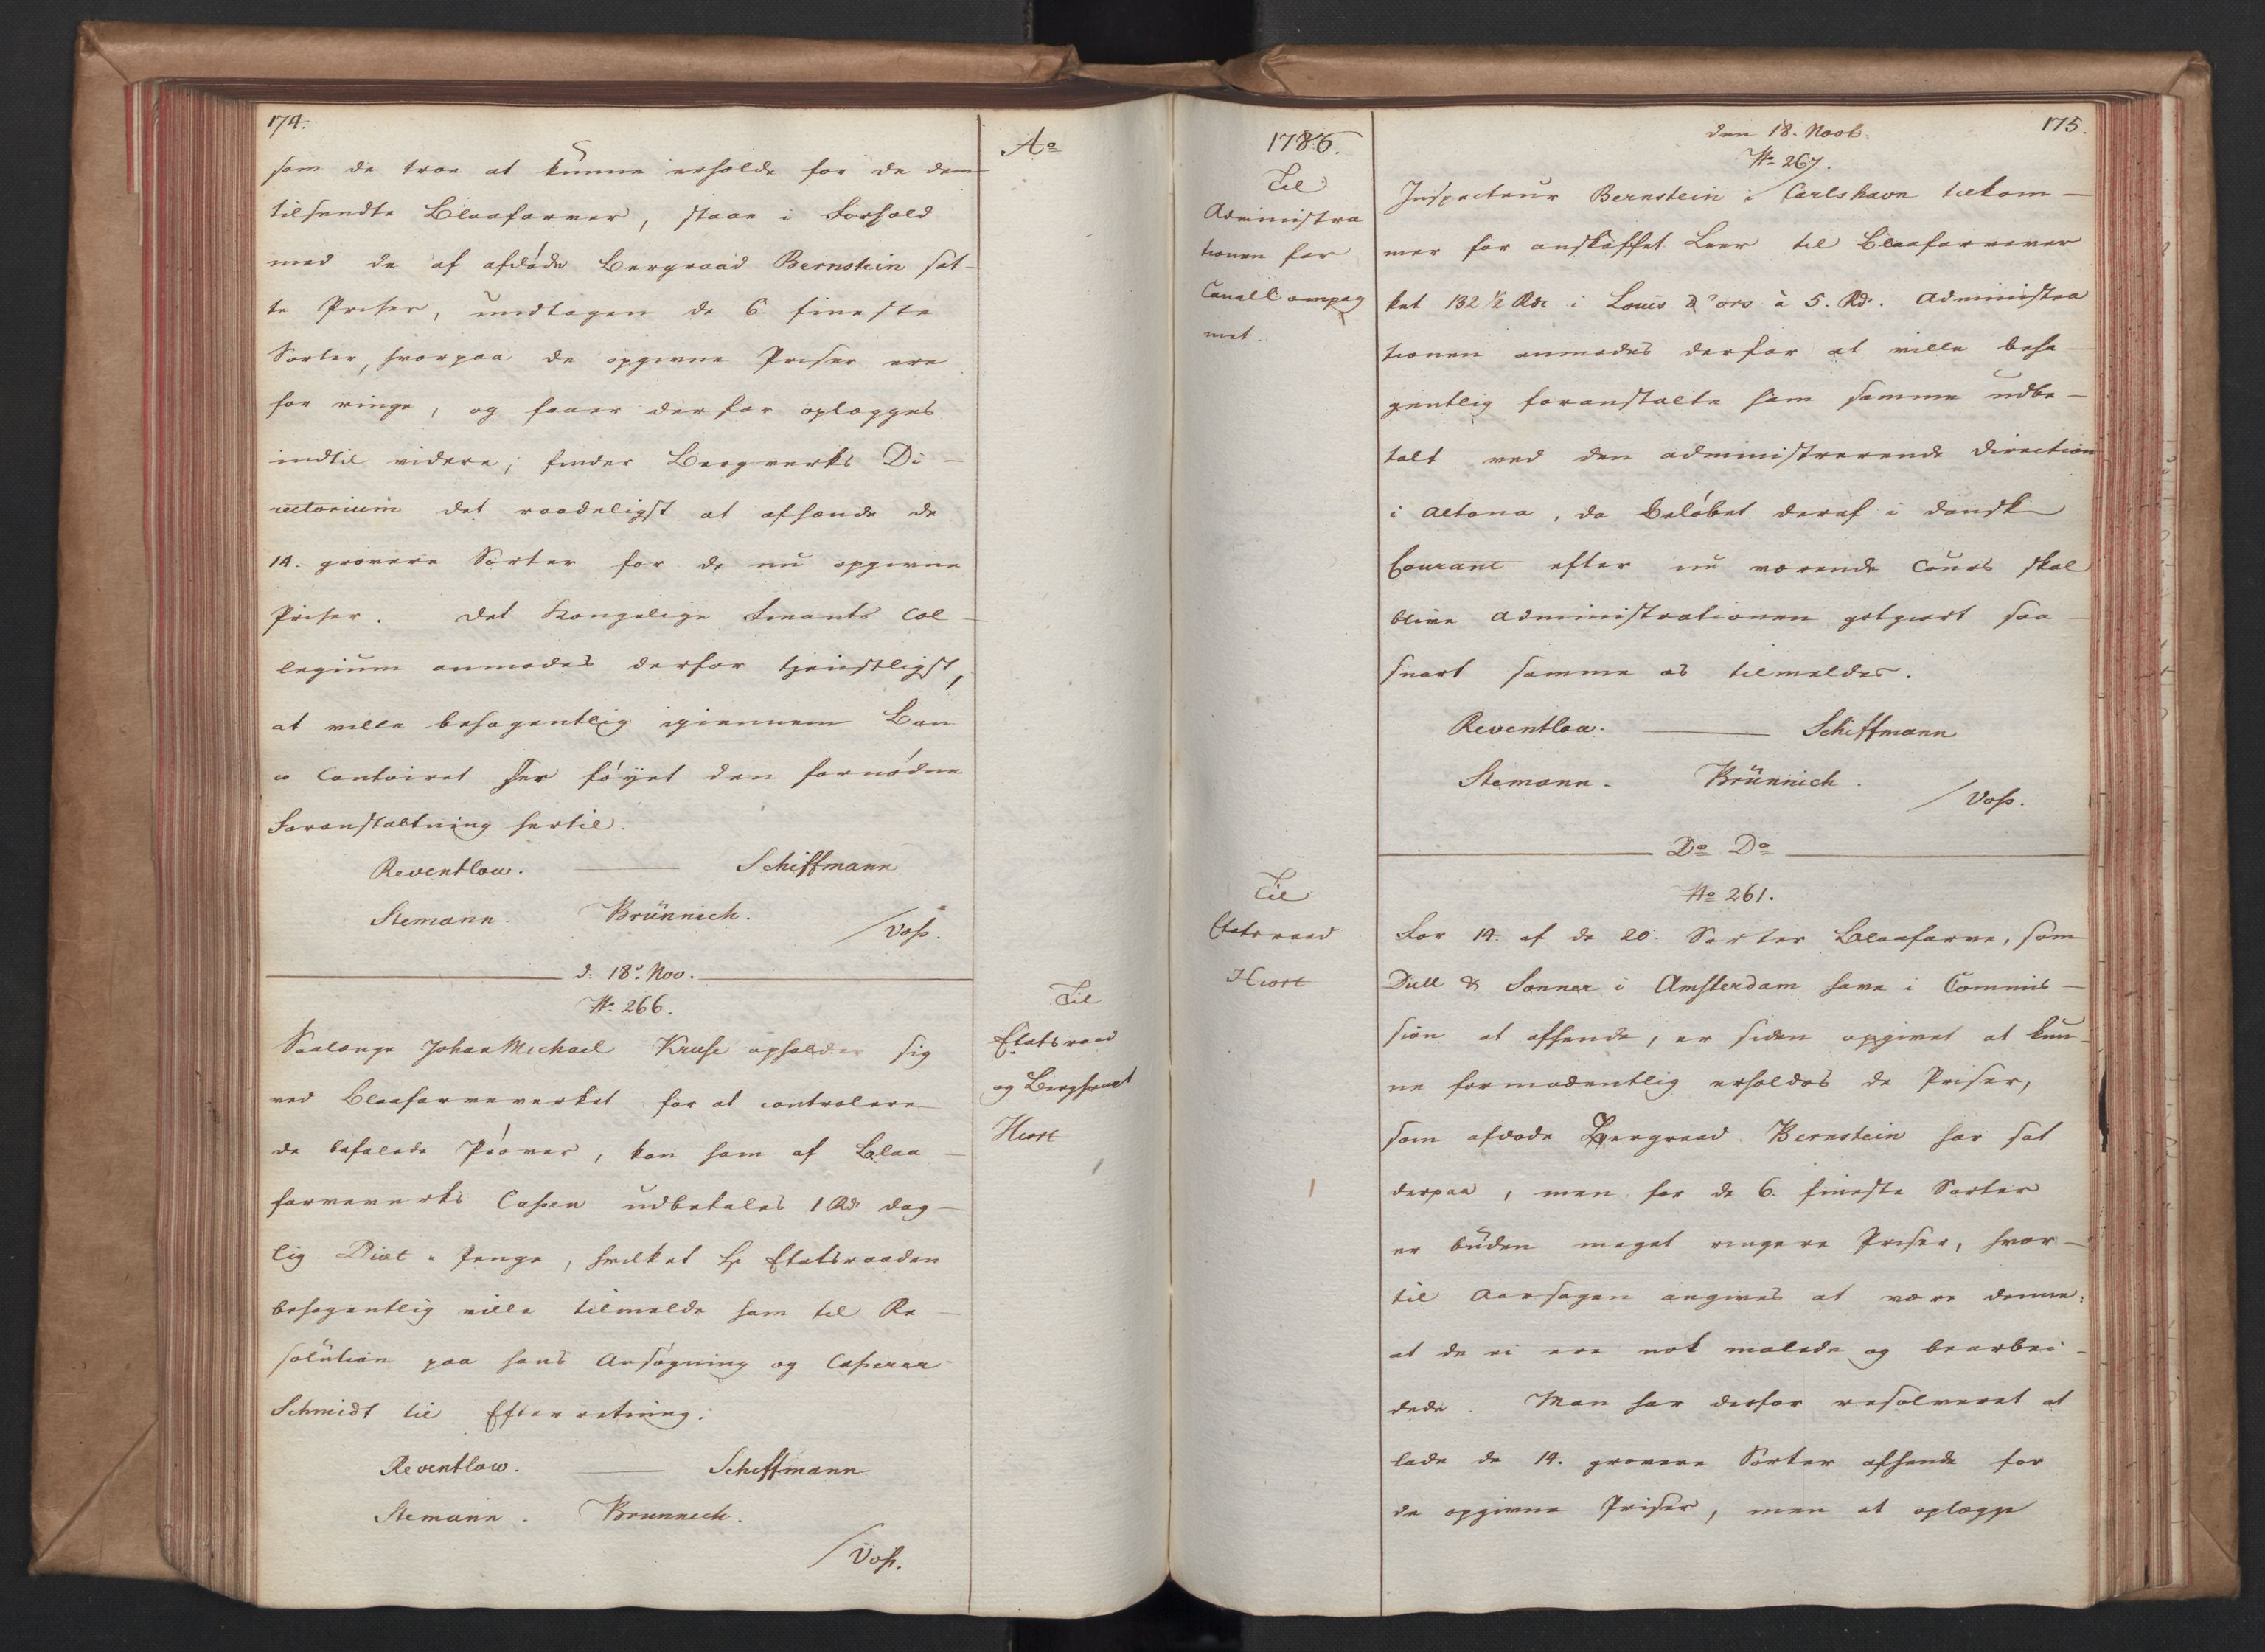 174.
Ao
som de troe at kunne erholde for de dem
tilsendte Blaafarver, staae i Forhold
med de af afdöde Bergraad Bernstein sat-
te Priser, undtagen de 6. fineste
Sorter, hvorpaa de opgivne Priser ere
for ringe, og faaer derfor oplægges
indtil videre; finder Bergverks Di-
rectorium det raadeligst at afhænde de
14. grovere Sorter for de nu opgivne
Priser. Det Kongelige Finants Col-
legium anmodes derfor tjenstligst,
at ville behagentlig igiennem Ban
co Contoiret föyet den fornödne
Foranstaltning hertil.
Reventlou. Schiffmann
Stemann. Brünnich.
/Voss.
d. 18de. Nov.
No 266.
Til
Etatsraad
og Berghauptm
Hiort
Saalænge Johan Michael Kruse opholder sig
ved Blaafarveverket for at controlere
de befalede Pröver, kan ham af Blaa-
farveverks Cassen udbetales 1 Rdr dag-
lig Diæt-Penge, hvilket Hr Etatsraaden
behagentlig ville tilmelde ham til Re-
solution paa hans Ansögning og Casserer
Schmidt til Efterretning.
Reventlow. Schiffmann
Stemann. Brünnich.
/Voss.
1786.
175.
den 18. Novb.
No 267.
Til
Administra
tionen for
Canal Compag
niet.
Inspecteur Bernstein i Carlshavn tilkom-
mer for anskaffet Leer til Blaafarvever
ket 132 1/2 Rdr i Louis d'ors à 5. Rd. Administra
tionen anmodes derfor at ville beha-
gentlig foranstalte ham samme udbe-
talt ved den administrerende Direction
i Altona, da Belöbet deraf i dansk
Courant efter nu værende Cours skal
blive Administrationen godgiort saa-
snart samme os tilmeldes.
Reventlou. Schiffmann
Stemann. Brünnich.
/Voss.
Do Do
No 261.
Til
Etatsraad
Hiort
For 14. af de 20. Sorter Blaafarve, som
Dull & Sönner i Amsterdam have i Commis-
sion at afhænde, er siden opgivet at kun-
ne formodentlig erholdes de Priser,
som afdöde Bergraad Bernstein har sat
derpaa, men for de 6. fineste Sorter
er buden meget ringere Priser, hvor-
til Aarsagen angives at være denne:
at de ei ere nok malede og bearbei-
dede. Man har derfor resolveret at
lade de 14. grovere Sorter afhænde for
de opgivne Priser, men at oplægge